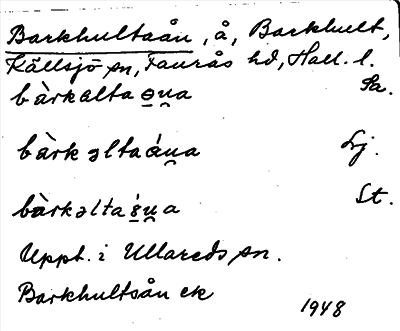 Barkhultaån, å, Barkhult,
Källsjö sn, Faurås hd, Hall. l.
bàrkaltao̲n̯a Sa.
bàrkəltaán̯a Lj.
bàrkəlta n̯a St.
Uppt. i Ullareds sn.
Barkhultsån ek
1948